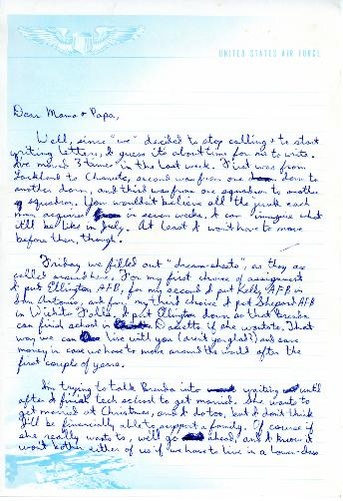 UNITED STATES AIR FORCE
Dear Mama + Papa,
Well, since "we" decided to stop calling + to start
writing letters, I guess it's about time for me to write.
I've moved 3 times in the last week. First was from
Lackland to Chanute, second was from one dorm to
another dorm, and third was from one squadron to another
squadron. You wouldn't believe all the junk each
man acquires in seven weeks. I can imagine what
it'll be like in July. At least I won't have to move
before then, though.
Friday we filled out "dream-sheets", as they are
called around here. For my first choice of assignment
I put Ellington AFB, for my second I put Kelly AFB in
San Antonio, and for my third choice I put Shepard AFB
in Wichita Falls. I put Ellington down so that Brenda
can finish school in if she wants to. That
way we can live with you (aren't you glad) and save
money in case we have to move around the world after the
first couple of years.
I'm trying to talk Brenda into waiting until
after I finish tech school to get married. She wants to
get married at Christmas, and I do too, but I don't think
I'll be financially able to support a family. Of course if
she really wants to, we'll go ahead, and I know it
won't bother either of us if we have to live in a lower-class